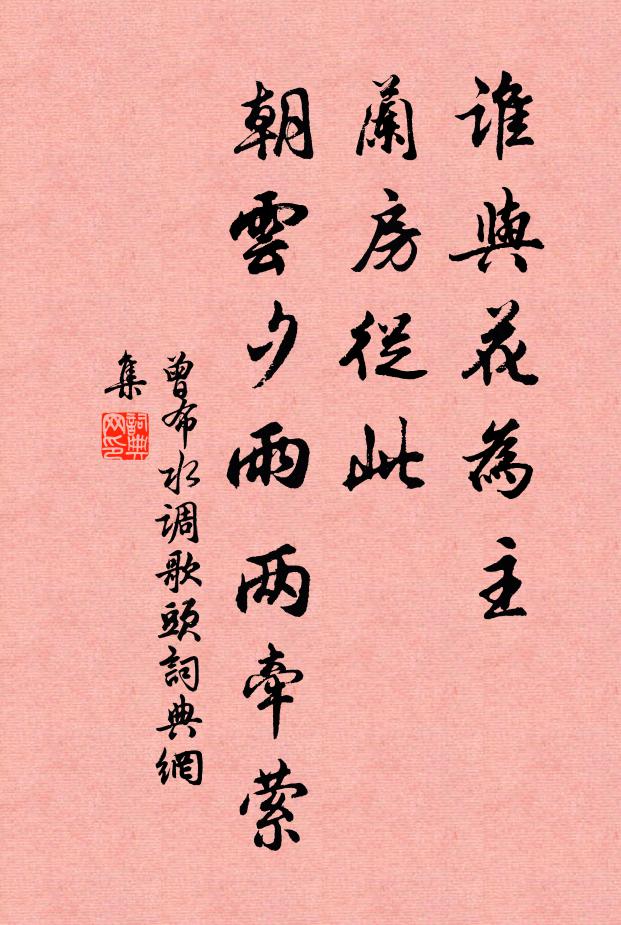 誰與花為主
蘭房從此
朝雲夕雨两牽縈
曾布水调歌頭詞典網
集
詞典网印